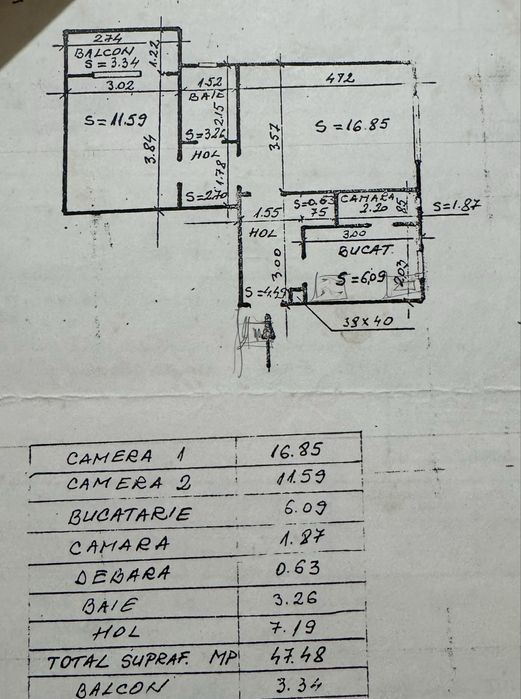 2.74
BALCON
1.22
S = 3.34
3.02
1.52
4.72
BAIE
2.15
S = 11.59
3.84
S = 3.26
3.57
S = 16.85
HOL
1.78
S = 2.70
S = 0.63
75
CAMARA
2.20
85
S = 1.87
1.55
HOL
3.00
BUCAT.
3.00
S = 6.09
2.03
S = 4.49
38 x 40
CAMERA 1 16.85
CAMERA 2 11.59
BUCATARIE 6.09
CAMARA 1.87
DEBARA 0.63
BAIE 3.26
HOL 7.19
TOTAL SUPRAF. MP 47.48
BALCON 3.34